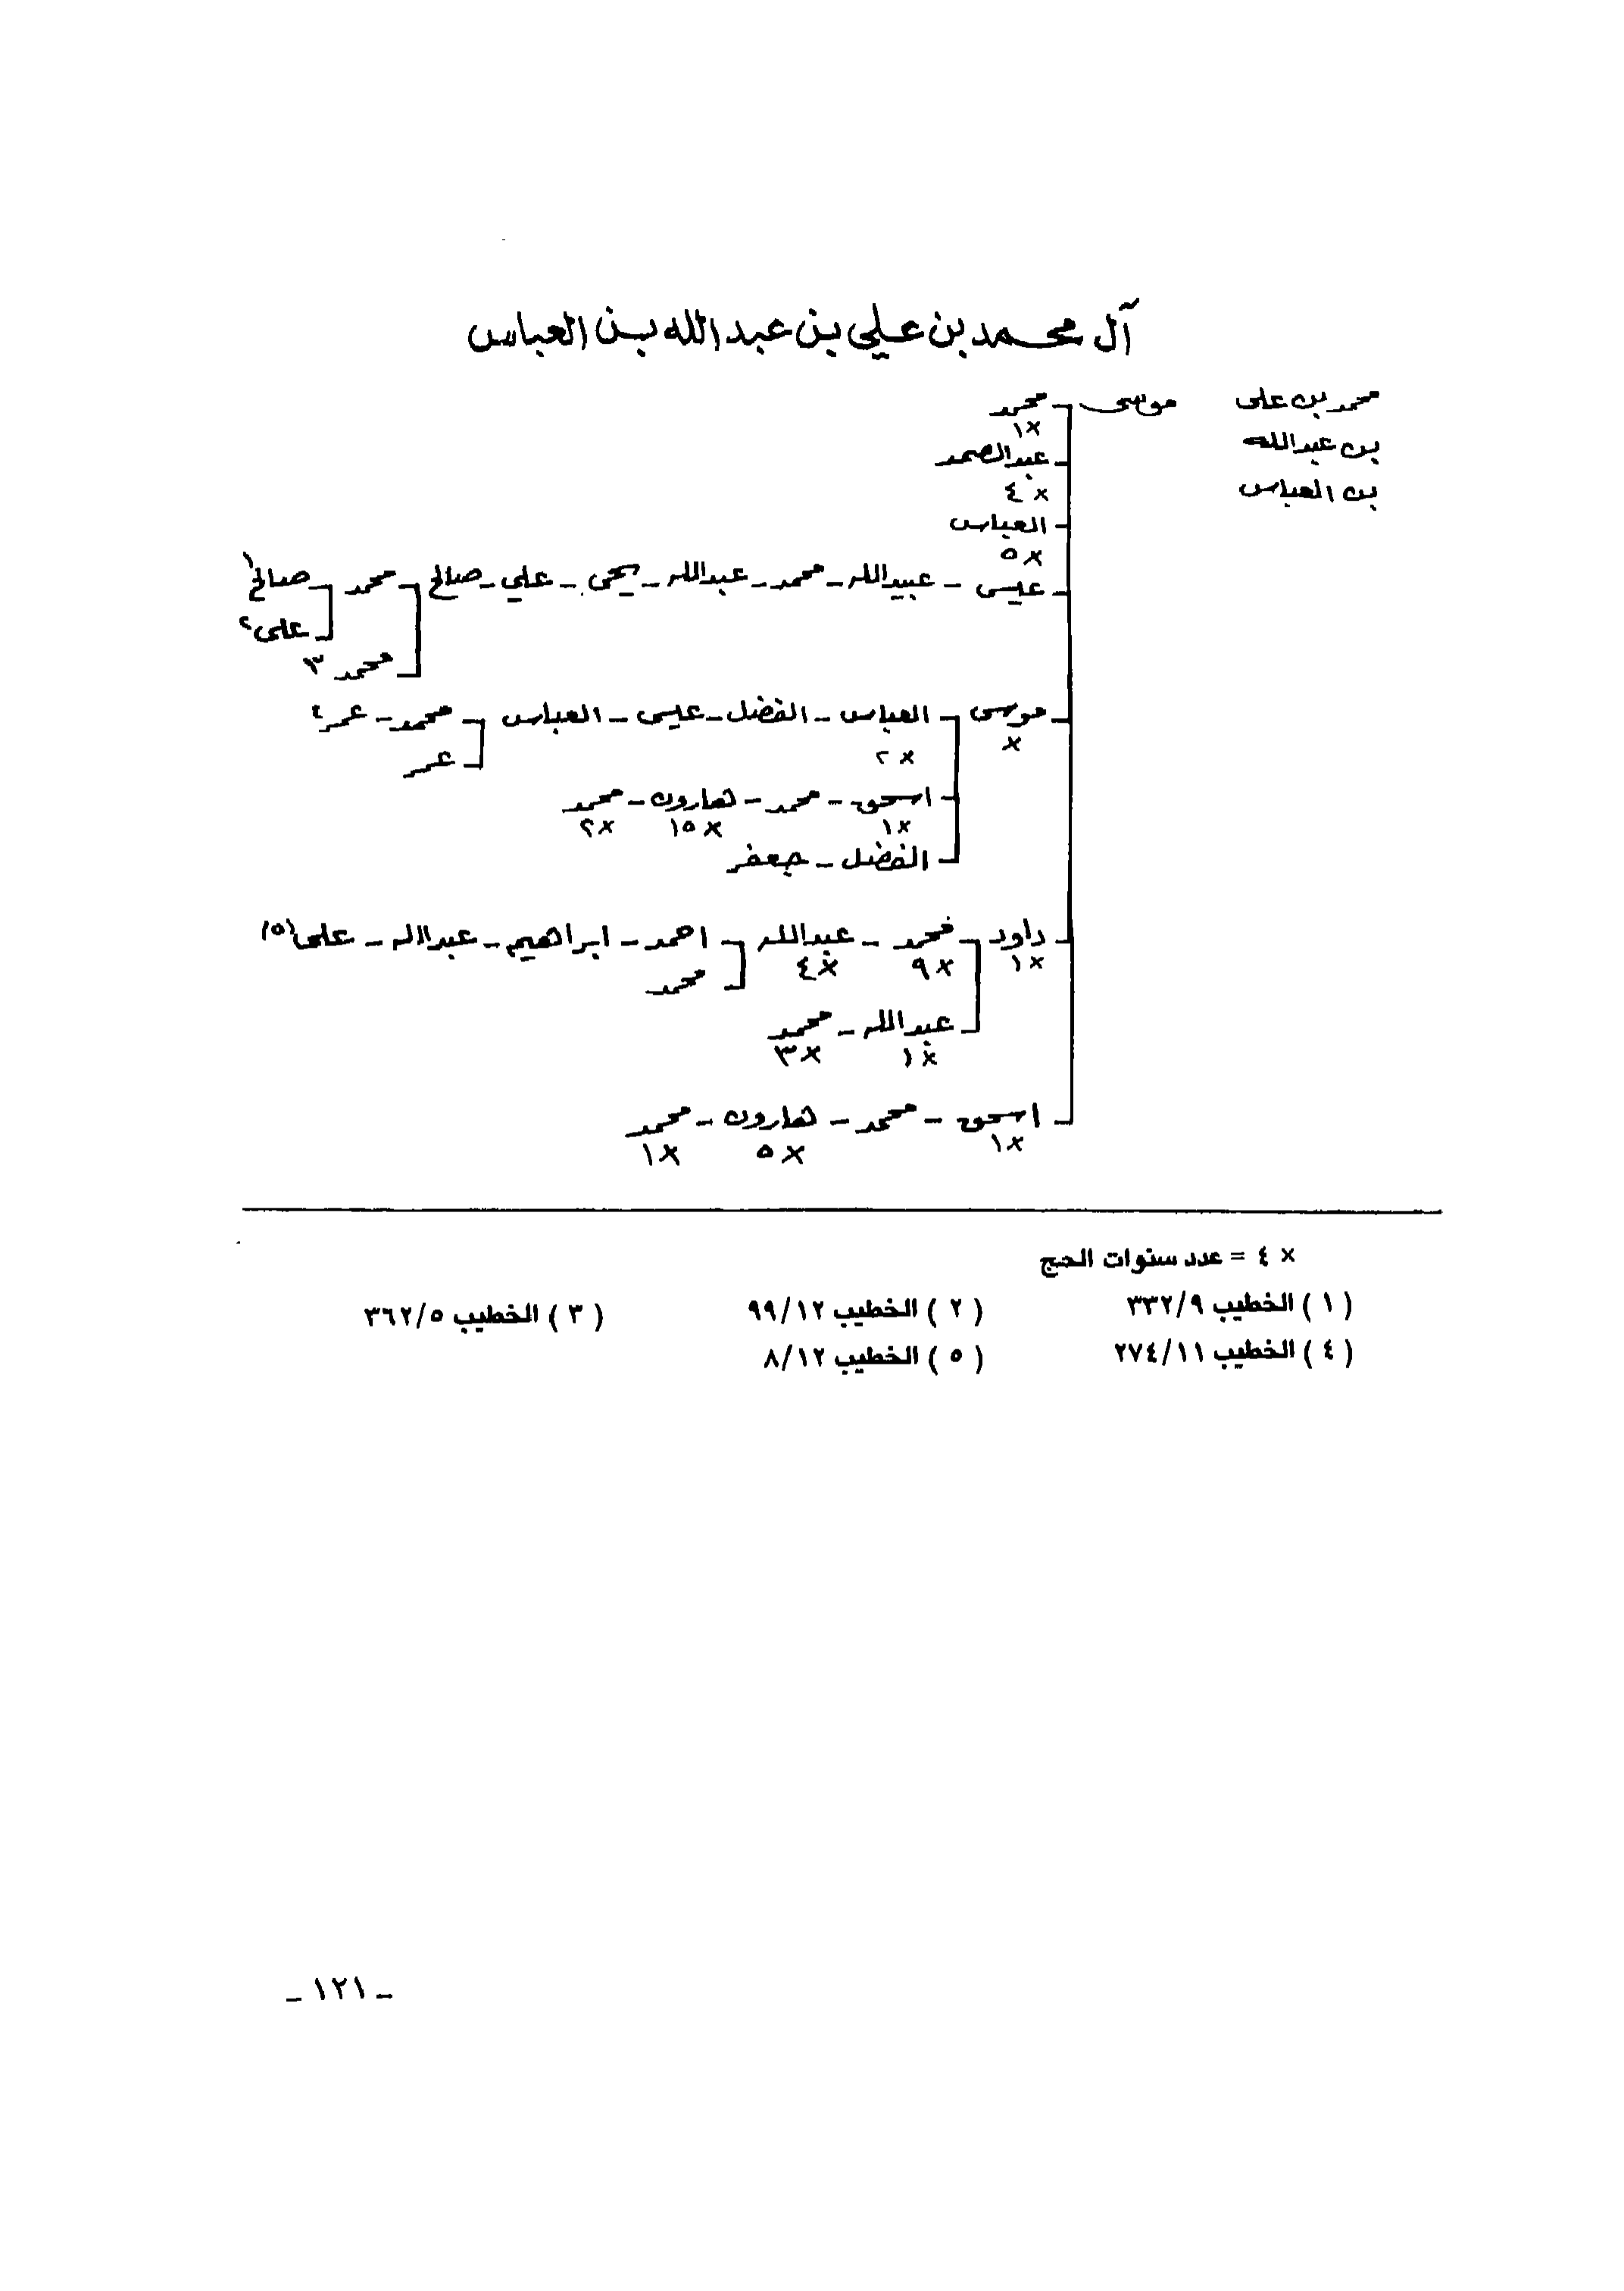 آل محمد بن علي بن عبد الله بن العباس
محمد بن على موسى محمد
×١
بن عبدالله
عبدالصمد
×٤
بن العباس
العباس
×٥
عيسى - عبيدالله - محمد - عبدالله - يحيى - علي - صالح محمد صالح١
على٢
محمد ٣
موسى العباس - الفضل - عيسى - العباس محمد - عمر٤
×
×٢
عمر
اسحق - محمد - هارون - محمد
×١ ×١٥ ×٢
الفضل - جعفر
داود محمد - عبدالله احمد - ابراهيم - عبدالله - على(٥)
×١ ×٩ ×٤
محمد
عبدالله - محمد
×١ ×٣
اسحق - محمد - هارون - محمد
×١ ×٥ ×١
× ٤ = عدد سنوات الحج
( ١ ) الخطيب ٣٣٢/٩ ( ٢ ) الخطيب ٩٩/١٢ ( ٣ ) الخطيب ٣٦٢/٥
( ٤ ) الخطيب ٢٧٤/١١ ( ٥ ) الخطيب ٨/١٢
ـ ١٢١ ـ